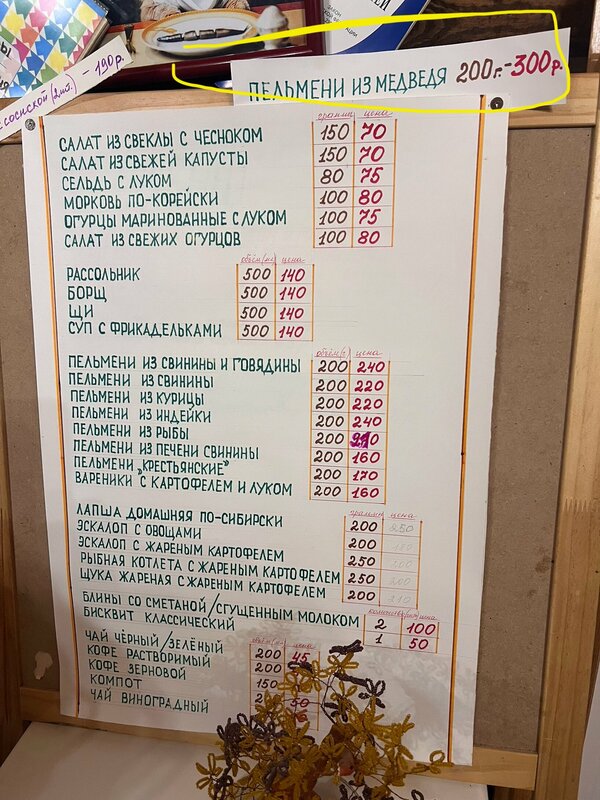 с сосиской (2шт.) - 190р.
ПЕЛЬМЕНИ ИЗ МЕДВЕДЯ 200г.-300р.
грамм цена
САЛАТ ИЗ СВЕКЛЫ С ЧЕСНОКОМ 150 70
САЛАТ ИЗ СВЕЖЕЙ КАПУСТЫ 150 70
СЕЛЬДЬ С ЛУКОМ 80 75
МОРКОВЬ ПО-КОРЕЙСКИ 100 80
ОГУРЦЫ МАРИНОВАННЫЕ С ЛУКОМ 100 75
САЛАТ ИЗ СВЕЖИХ ОГУРЦОВ 100 80
объём(г) цена
РАССОЛЬНИК 500 140
БОРЩ 500 140
ЩИ 500 140
СУП С ФРИКАДЕЛЬКАМИ 500 140
объём(г) цена
ПЕЛЬМЕНИ ИЗ СВИНИНЫ И ГОВЯДИНЫ 200 240
ПЕЛЬМЕНИ ИЗ СВИНИНЫ 200 220
ПЕЛЬМЕНИ ИЗ КУРИЦЫ 200 220
ПЕЛЬМЕНИ ИЗ ИНДЕЙКИ 200 240
ПЕЛЬМЕНИ ИЗ РЫБЫ 200 210
ПЕЛЬМЕНИ ИЗ ПЕЧЕНИ СВИНИНЫ 200 160
ПЕЛЬМЕНИ „КРЕСТЬЯНСКИЕ" 200 170
ВАРЕНИКИ С КАРТОФЕЛЕМ И ЛУКОМ 200 160
грамм цена
ЛАПША ДОМАШНЯЯ ПО-СИБИРСКИ 200 250
ЭСКАЛОП С ОВОЩАМИ 200
ЭСКАЛОП С ЖАРЕНЫМ КАРТОФЕЛЕМ 250
РЫБНАЯ КОТЛЕТА С ЖАРЕНЫМ КАРТОФЕЛЕМ 250 200
ЩУКА ЖАРЕНАЯ С ЖАРЕНЫМ КАРТОФЕЛЕМ 200 210
цена
БЛИНЫ СО СМЕТАНОЙ/СГУЩЕННЫМ МОЛОКОМ 2 100
БИСКВИТ КЛАССИЧЕСКИЙ 1 50
цена
ЧАЙ ЧЁРНЫЙ/ЗЕЛЁНЫЙ 200 45
КОФЕ РАСТВОРИМЫЙ 200
КОФЕ ЗЕРНОВОЙ 150
КОМПОТ
ЧАЙ ВИНОГРАДНЫЙ